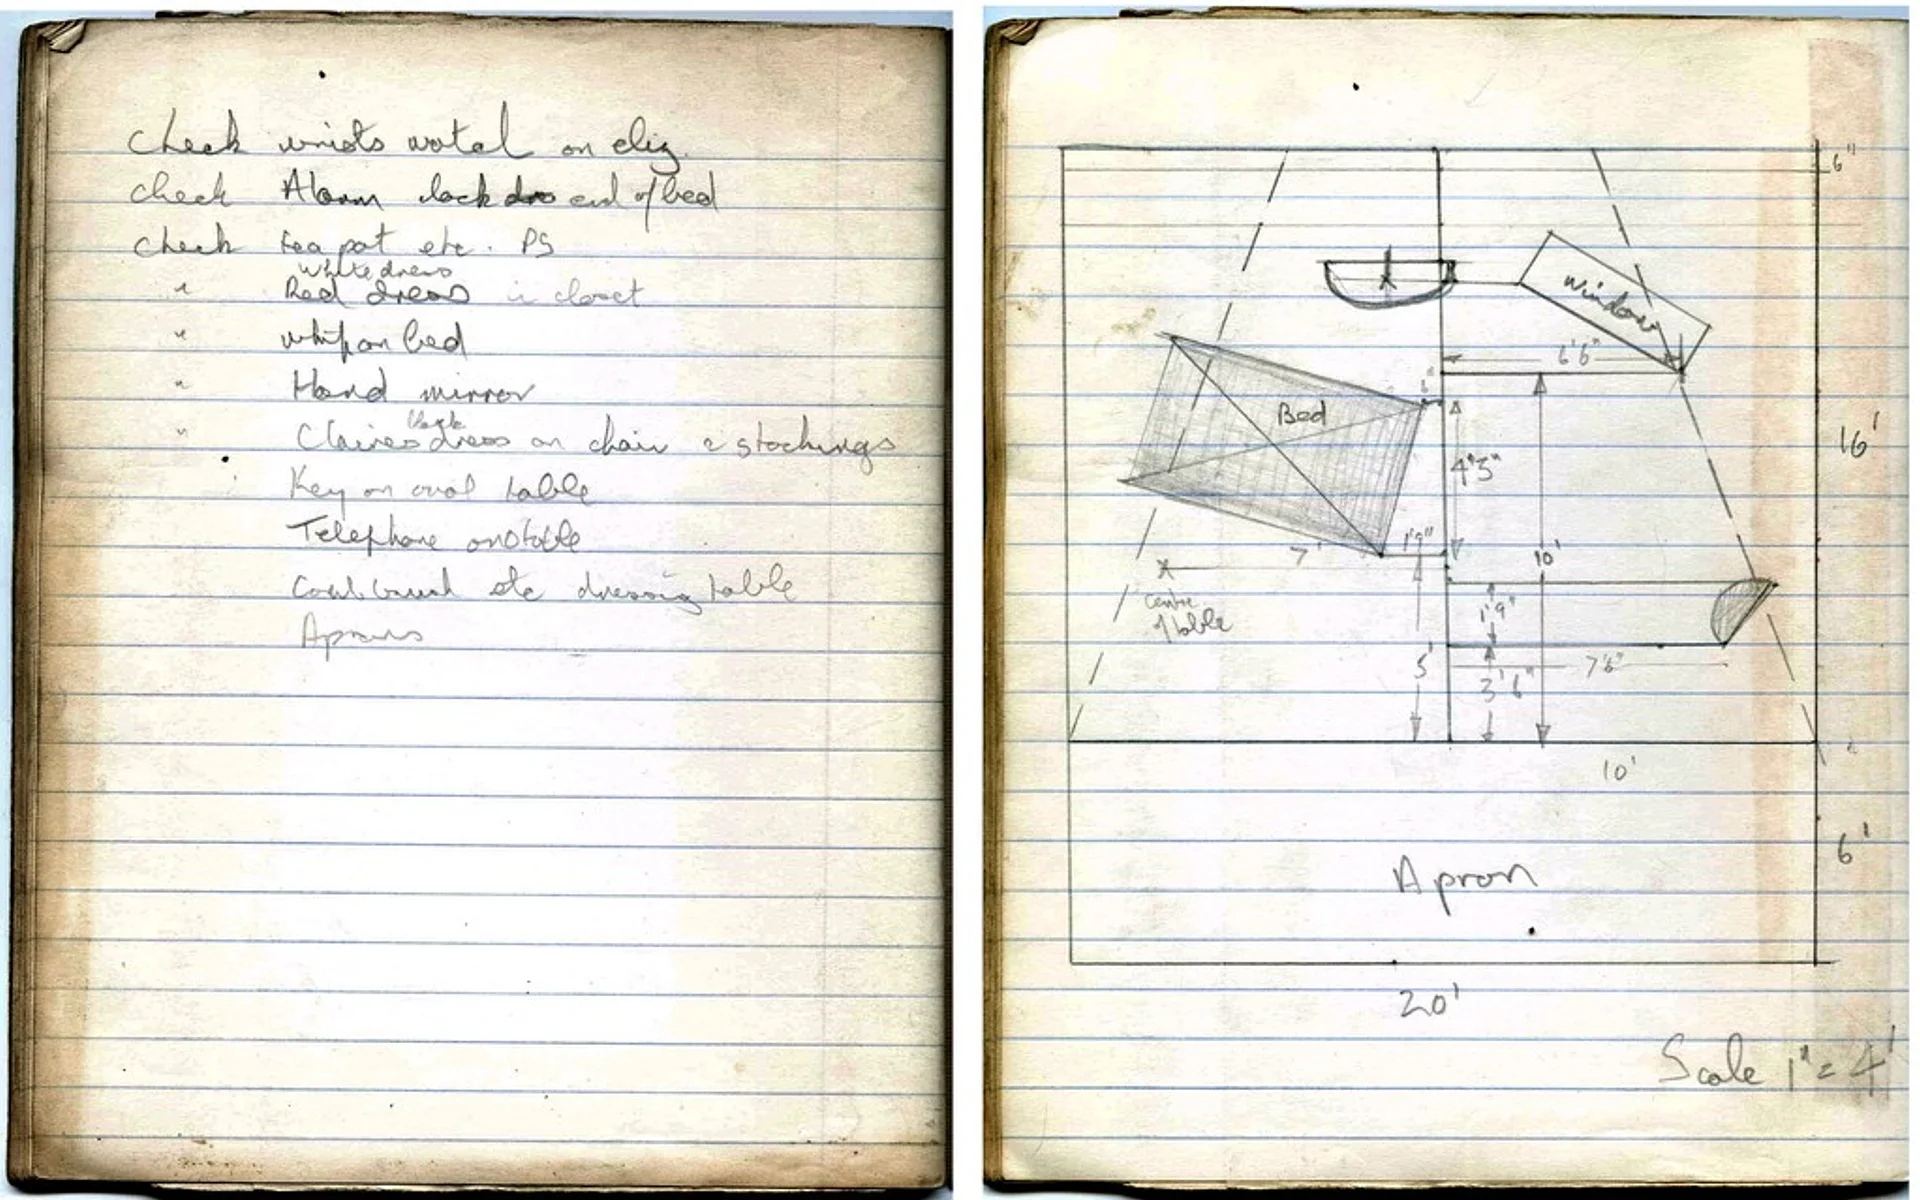 check wrists watch on eliz.
check Alarm clock end of bed
check tea pot etc. PS
White dress
" Red dress in closet
" whip on bed
" Hand mirror
black
" Claires dress on chair & stockings
Key on oval table
Telephone on stable
brush etc dressing table
Aprons
6"
window
6'6"
Bed
16'
4'3"
1'9"
7'
10'
Centre
of table
1'9"
5'
7'6"
3'6"
10'
6'
Apron
20'
Scale 1" = 4'